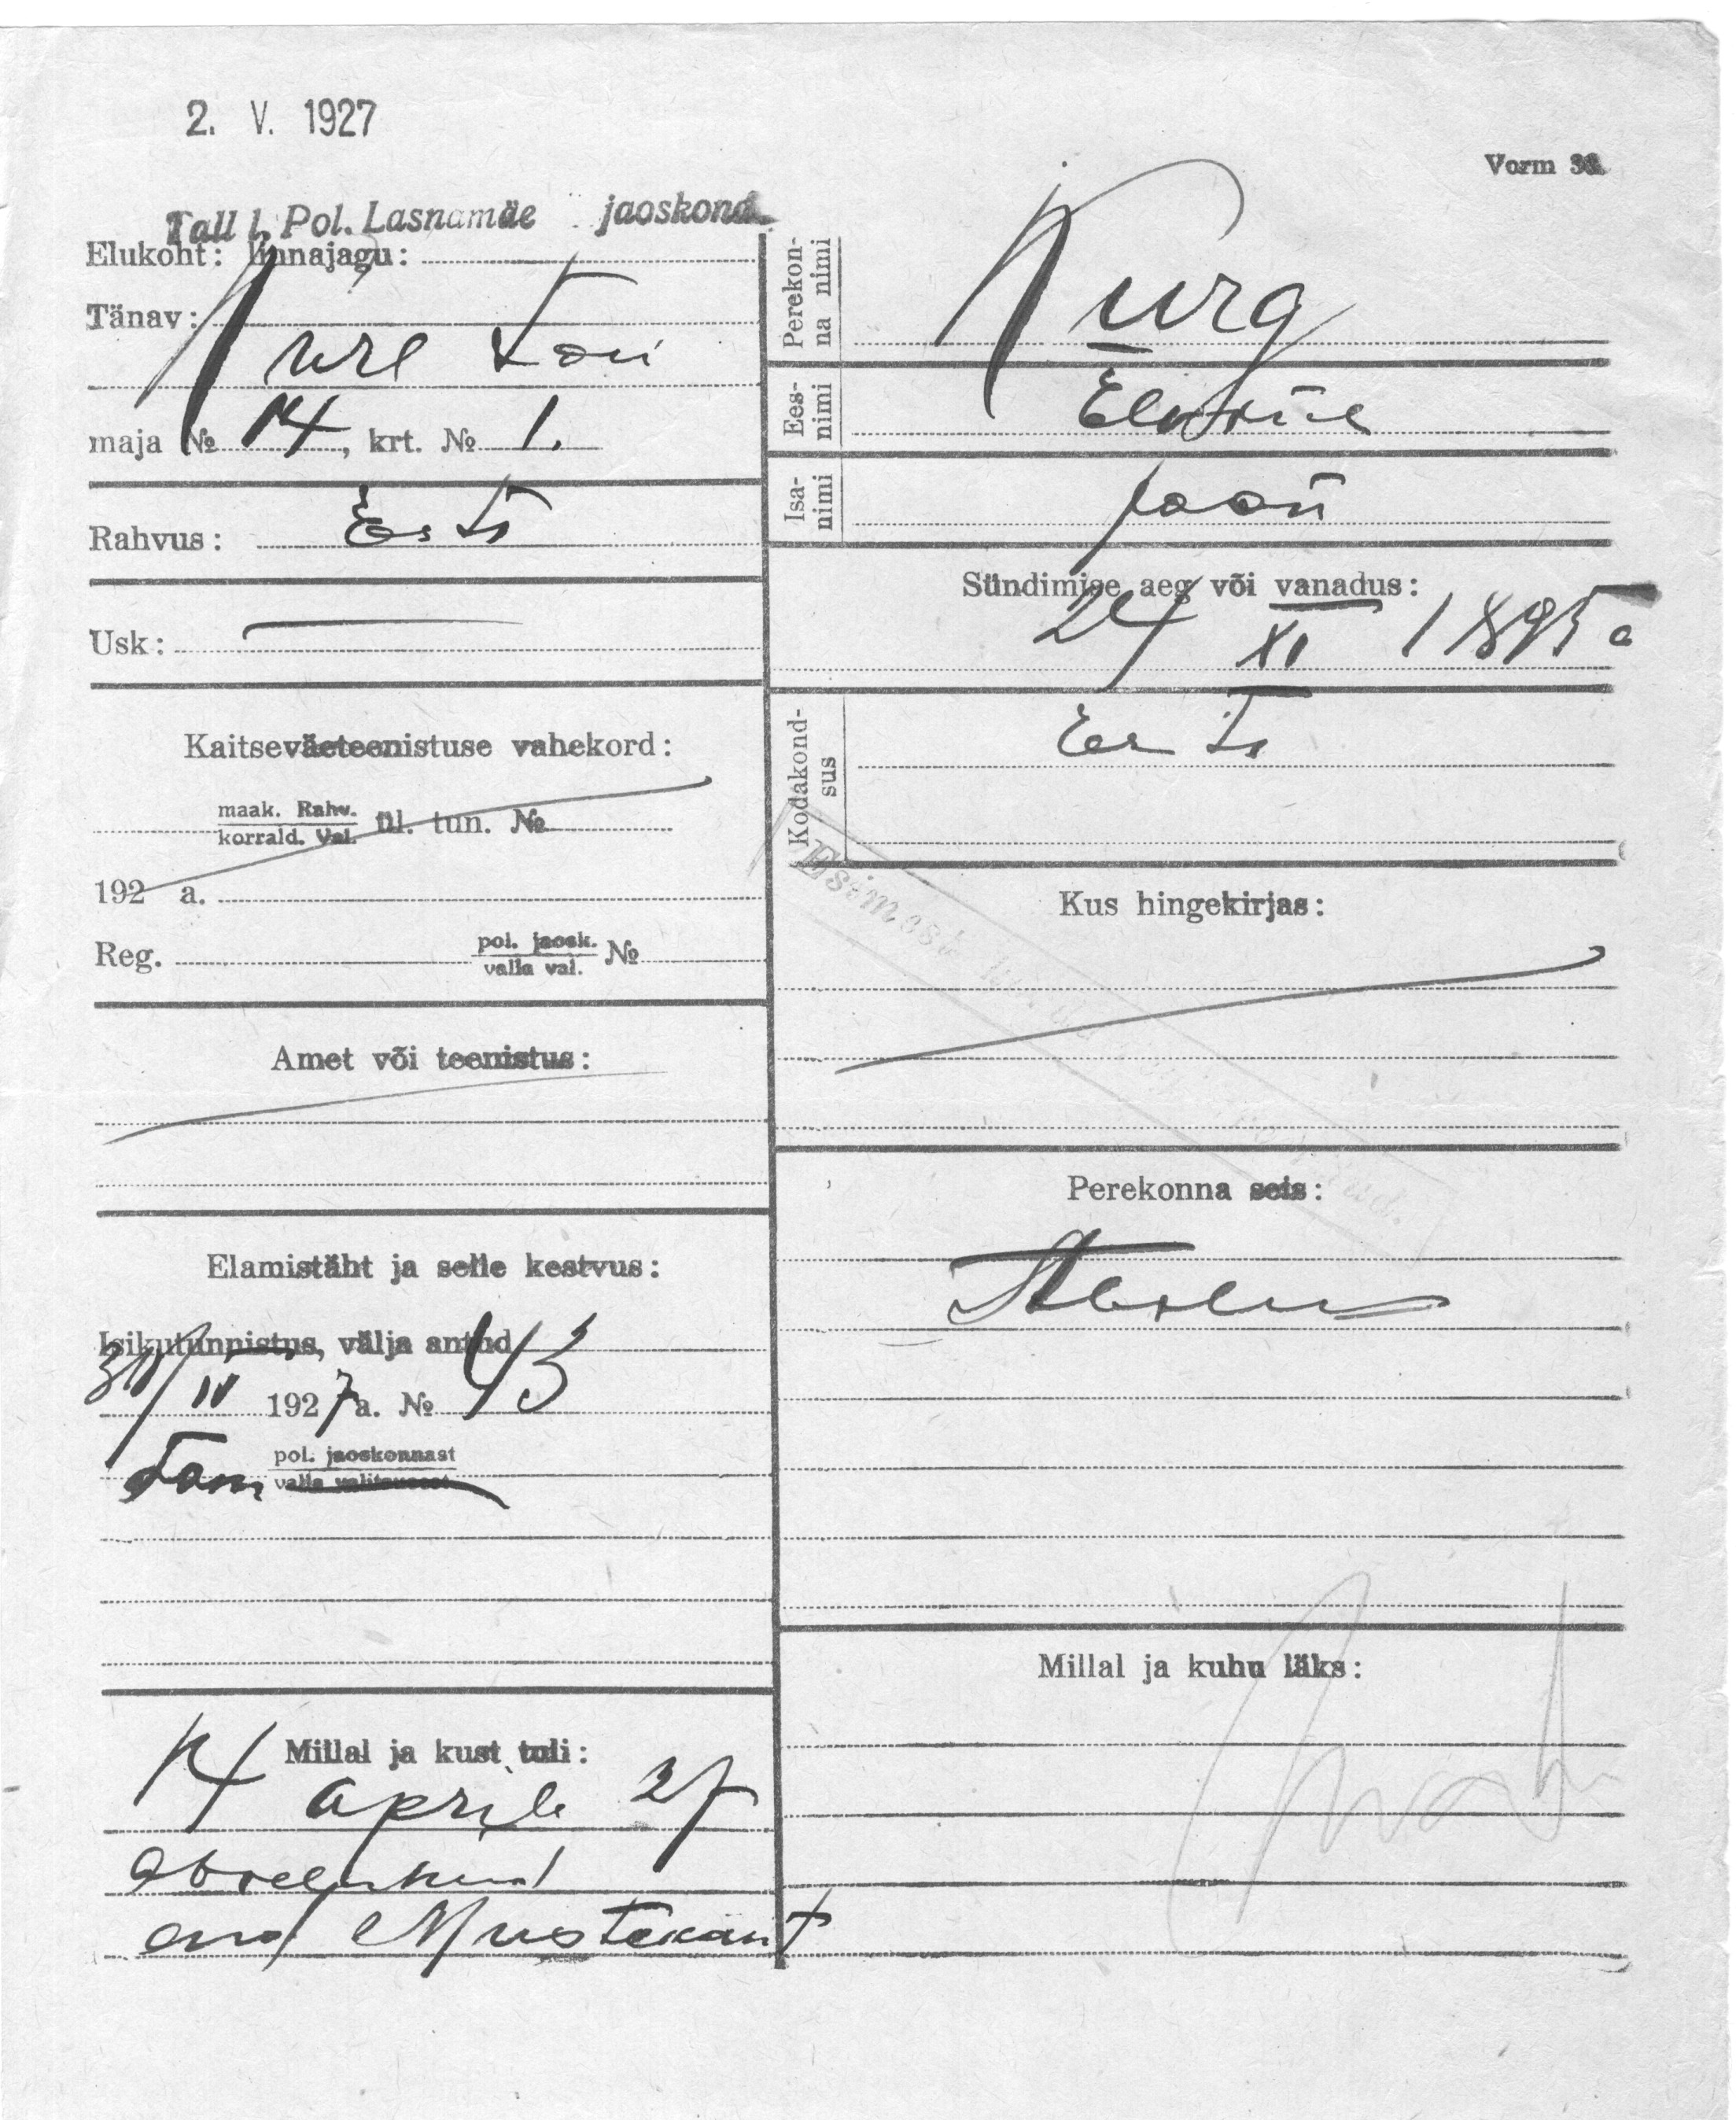 2. V. 1927
Vorm 30.
Tall l. Pol. Lasnamäe jaoskond.
Elukoht: linnajagu:
Tänav:
maja № 14, krt. № 1.
Rahvus: Eesti
Usk:
Kaitseväeteenistuse vahekord:
maak. Rahv.
korrald. Val. ül. tun. №
192 a.
Reg. pol. jaosk. №
valla val.
Amet või teenistus:
Elamistäht ja selle kestvus:
Isikutunnistus, välja antud
IV 1927 a. №
pol. jaoskonnast
valla valitsusest
Millal ja kust tuli:
14 aprile 27
abiellunud
end Mustekant
Perekon-
na nimi
Kurg
Ees-
nimi
Isa-
nimi
Jaan
Sündimise aeg või vanadus:
24 XI 1895 a
Kodakond-
sus
Eesti
Kus hingekirjas:
Perekonna seis:
Abielus
Millal ja kuhu läks: